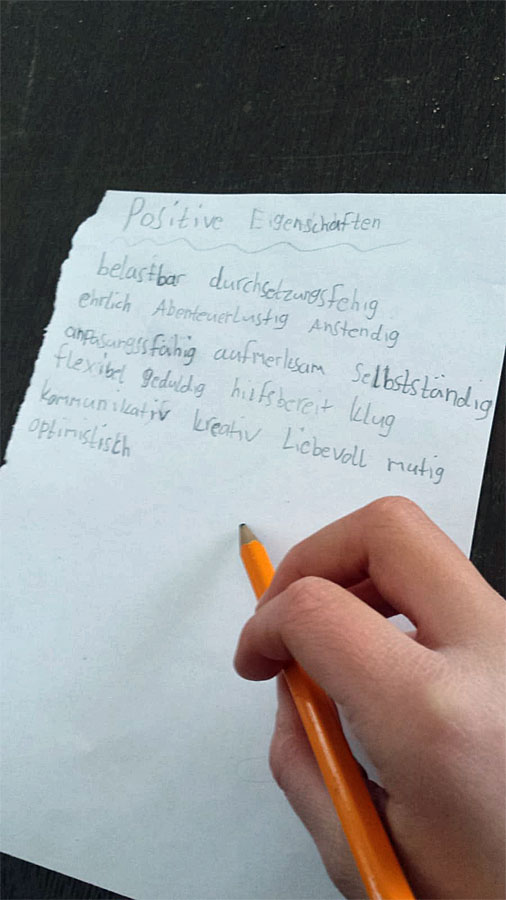 Positive Eigenschaften
belastbar durchsetzungsfehig
ehrlich Abenteuerlustig Anstendig
anpasungssfähig aufmerksam Selbstständig
flexibel geduldig hilfsbereit klug
kommunikativ kreativ Liebevoll mutig
optimistisch